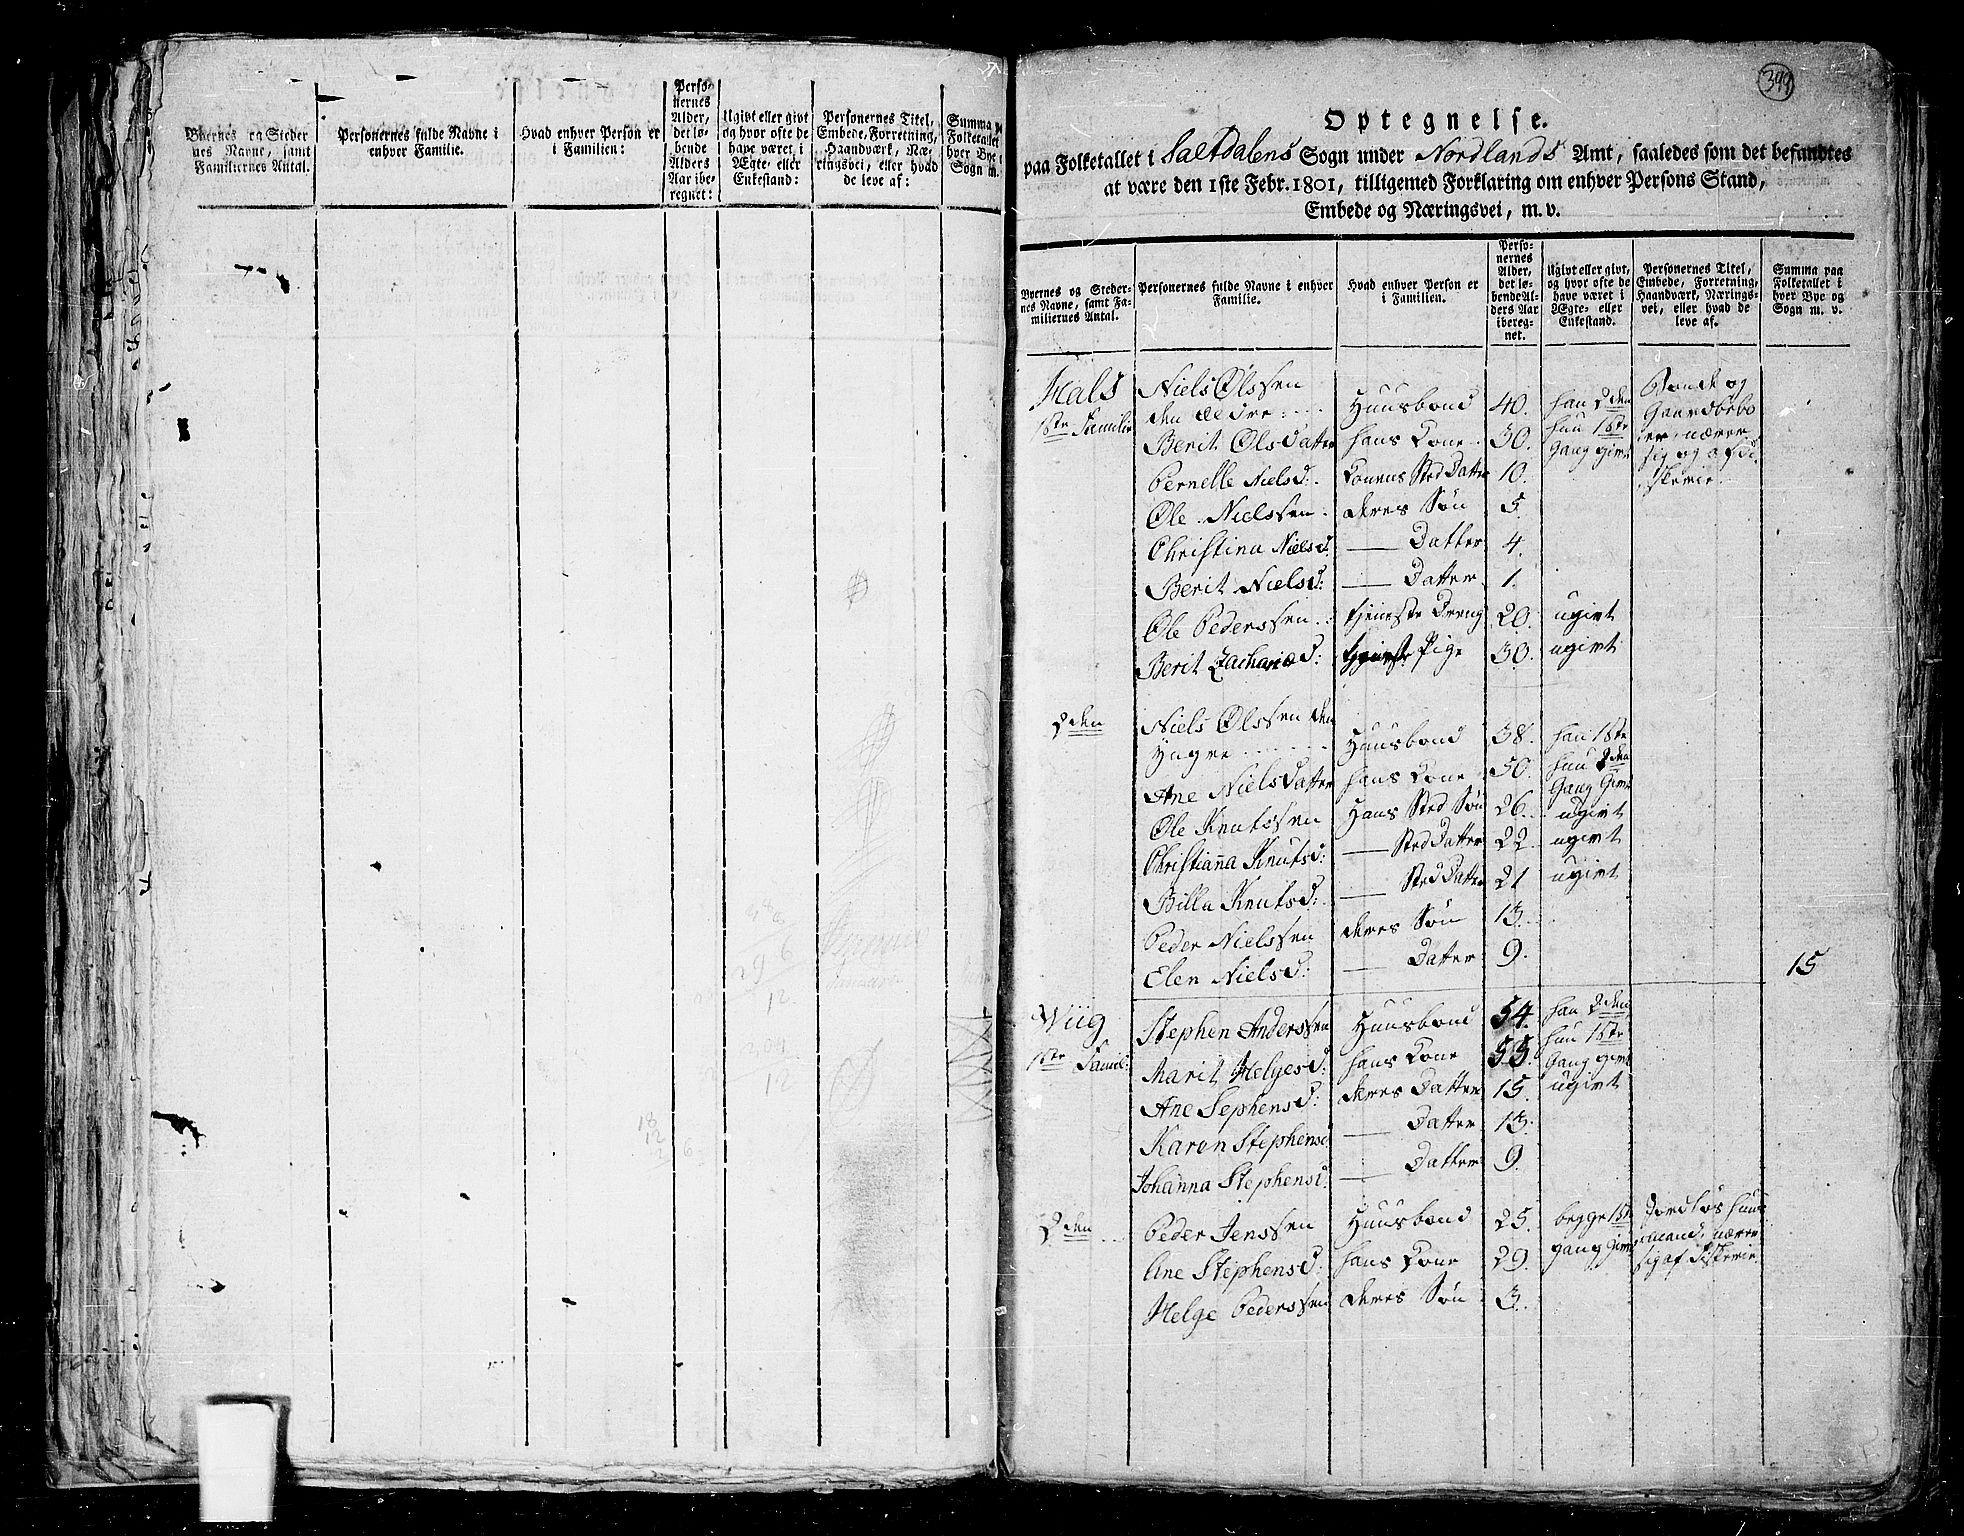 Byernes og Steder
nes Navne, samt
Familiernes Antal.
Personernes fulde Navne i
enhver Familie.
Hvad enhver Person er
i Familien:
Perso-
nernes
Alder,
det lø-
bende
Alders
Aar ibe-
regnet:
Ugivt eller givt
og hvor ofte de
have været i
Ægte- eller
Enkestand:
Personernes Titel,
Embede, Forretning,
Haandværk, Næ-
ringsvei, eller hvad
de leve af:
Summa p
Folketallet
hver Bye
Sogn m.
399
Optegnelse.
paa Folketallet i Saltdalens Sogn under Nordlands Amt, saaledes som det befandtes
at være den 1ste Febr. 1801, tilligemed Forklaring om enhver Persons Stand,
Embede og Næringsvei, m. v.
Byernes og Steder-
nes Navne, samt Fa-
miliernes Antal.
Personernes fulde Navne i enhver
Familie.
Hvad enhver Person er
i Familien.
Perso-
nernes
Alder,
det lø-
bende Al-
ders Aar
ibereg-
net.
Ugivt eller givt,
og hvor ofte de
have været i
Ægte- eller
Enkestand.
Personernes Titel,
Embede, Forretning,
Haandværk, Nærings-
vei, eller hvad de
leve af.
Summa paa
Folketallet i
hver Bye og
Sogn m. v.
Hals
1ste Familie
Niels Olssen
den ældre Huusbond 40. han 2den Bonde og Gaardbebo
Berit Olsdatter hans Kone 30. hun 1ste Gang givt er, nærer sig og af fi
Pernelle Nielsd: Konens Sted Datter 10. skerie
Ole Nielssen deres Søn 5.
Christina Nielsd: — Datter 4.
Berit Nielsd: — Datter 1.
Ole Pederssen tjeneste Dreng 20. ugivt
Berit Zachariæd: tjeneste Pige 30. ugivt
2den
Niels Olssen den
yngre Huusbond 38. han 1ste
Ane Nielsdatter hans Kone 50. hun 2den Gang Givt
Ole Knutssen Hans Sted Søn 26. ugivt
Christianna Knutsd: — Sted Datter 22. ugivt
Billa Knutsd: — Sted Datter 21 ugivt
Peder Nielssen deres Søn 13.
Elen Nielsd: — Datter 9. 15
Wiig
1ste Famil:
Stephen Anderssen Huusbond 54. han 2den
Marit Helgesd: hans Kone 55. hun 1ste Gang givt
Ane Sephensd: deres Datter 15. ugivt
Karen Stephensd — Datter 13.
Johanna Stephensd: — Datter 9.
2den
Peder Jenssen Huusbond 25. begge 1ste Jordløs Huus
Ane Stephensd: hans Kone 29. gang givt mand, nærer sig af Fiskerie
Helge Pederssen deres Søn 3.